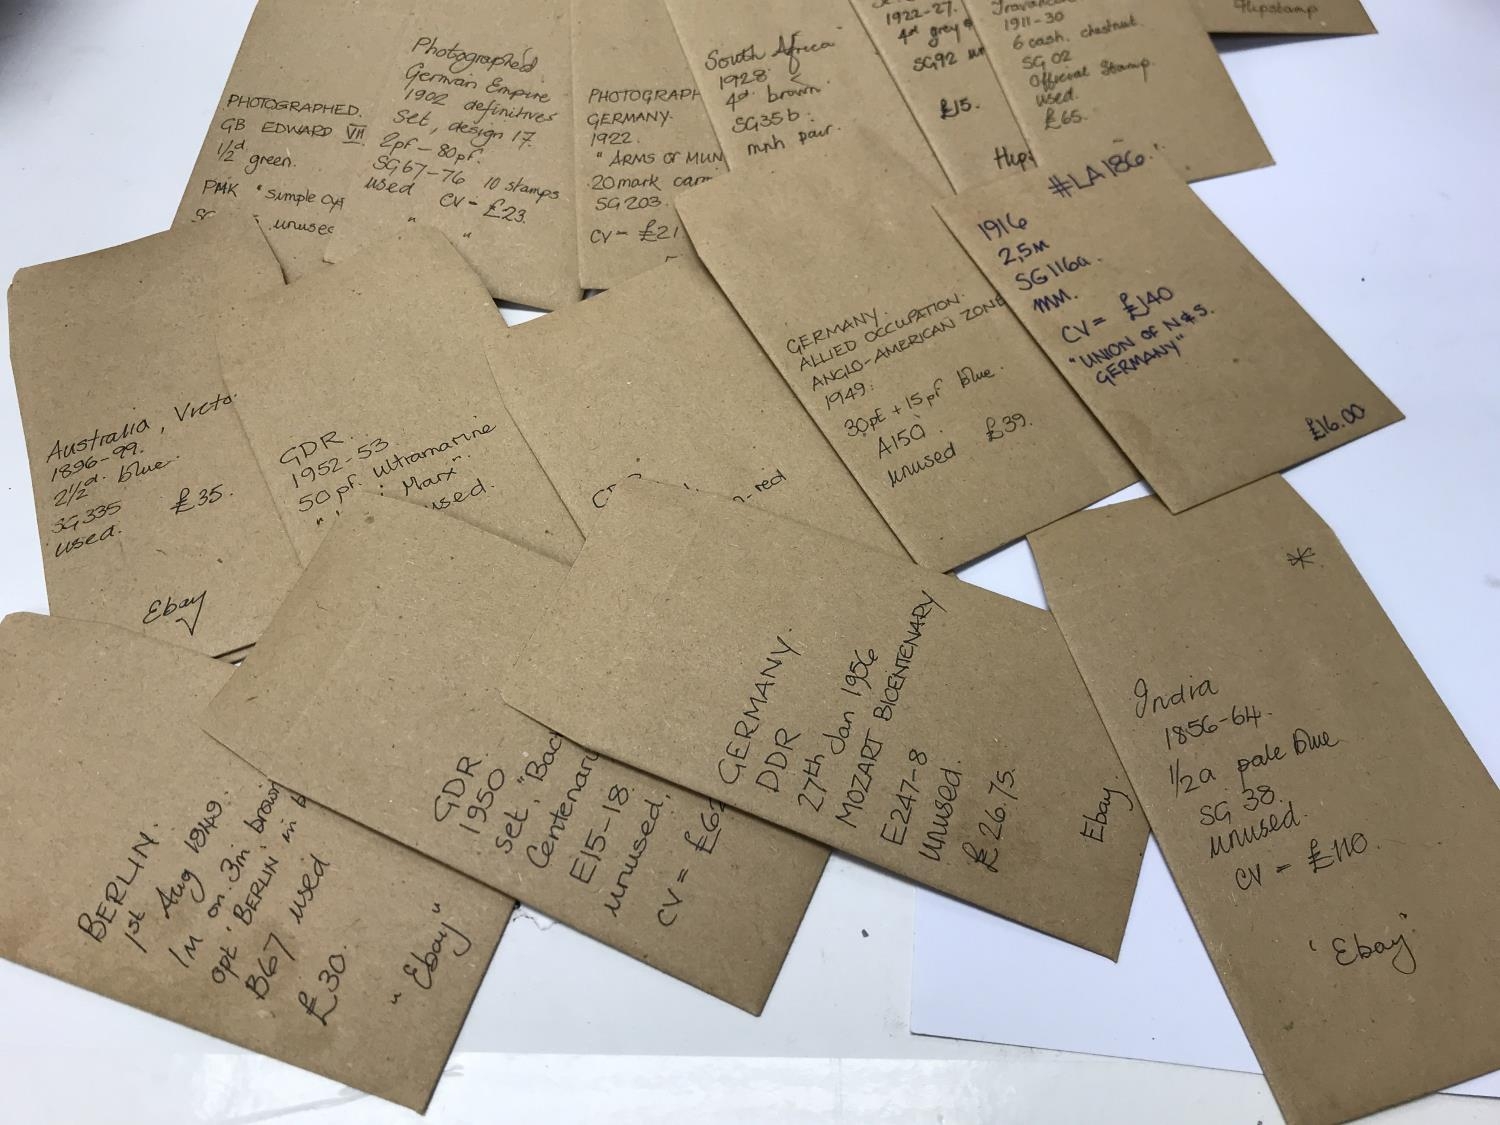 PHOTOGRAPHED.
GB EDWARD VII
1/2d green.
PMK "Simple
unused
Photographed
German Empire
1902 definitives
Set, design 17.
2pf - 80pf.
SG67-76 10 stamps
used CV = £23.
" "
PHOTOGRAPH
GERMANY.
1922.
"ARMS OF MUN
20mark
SG203.
CV = £21
South Africa
1928.
4d. brown.
SG35b.
mnh pair.
1922-27.
4d grey
SG92
£15.
1911-30
6 cash. chestnut.
SG 02
Official Stamp.
used.
£65.
Hipstamp
#LA186.
1916
2,5M
SG116a.
MM.
CV = £140
"UNION OF N & S.
GERMANY"
£16.00
GERMANY.
ALLIED OCCUPATION.
ANGLO-AMERICAN ZONE
1949:
30pf + 15pf blue.
A150.
unused £39.
Australia, Victo.
1896-99.
2 1/2d. blue.
SG335 £35.
used.
Ebay
GDR.
1952-53.
50pf. ultramarine
Marx".
used.
-red
BERLIN.
1st Aug 1849.
1M on 3m brown
opt 'BERLIN' in b
B67 used
£30.
"Ebay"
GDR.
1950
set, "Bac
Centenar
E15-18.
unused.
CV = £6
GERMANY.
DDR
27th Jan 1956
MOZART BICENTENARY
E247-8
Unused.
£26.75.
Ebay
*
India
1856-64.
1/2a pale blue
SG 38.
unused.
CV = £110.
'Ebay'